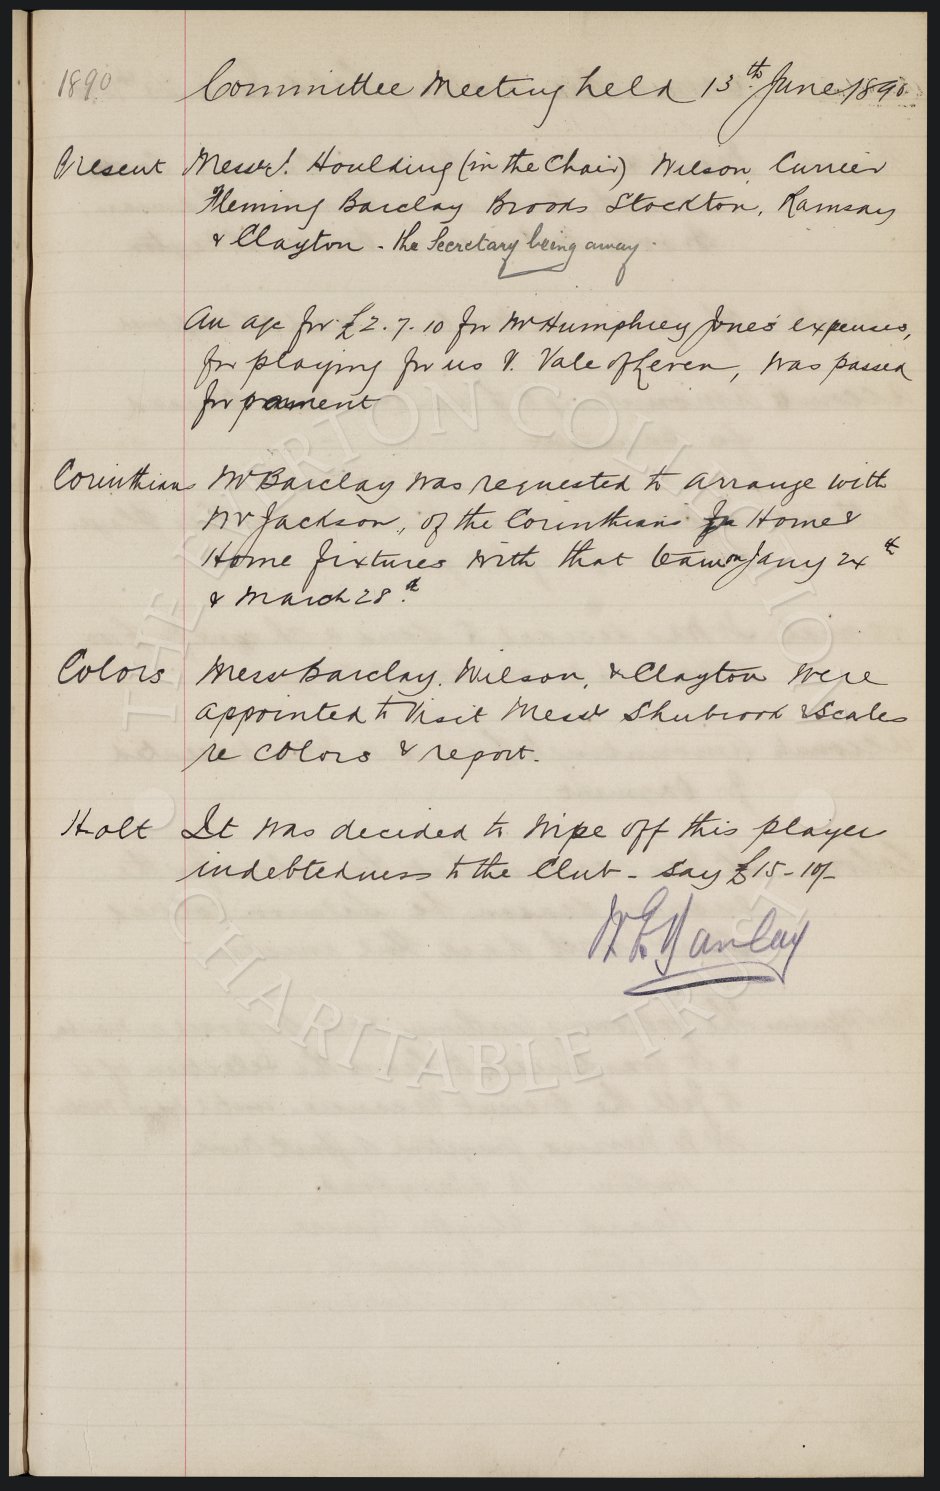 1890
Committee Meeting held 13th June 1890
Present Messrs J. Houlding (in the Chair) Wilson, Currier
Fleming Barclay Brooks Stockton, Ramsay
& Clayton - the Secretary being away.
An a/c for £2.7.10 for Mr Humphrey Jones expenses,
for playing for us V. Vale of Leven, was passed
for payment
Corinthians Mr Barclay was requested to arrange with
Mr Jackson, of the Corinthians for Home &
Home fixtures with that team on Jany 24th
& March 28th.
Colors Messrs Barclay, Wilson, & Clayton were
appointed to visit Messrs Shubrook & Scales
re colors & report.
Holt It was decided to wipe off this player
indebtedness to the Club - say £15-10/-
W E Barclay
THE EVERTON COLLECTION
CHARITABLE TRUST